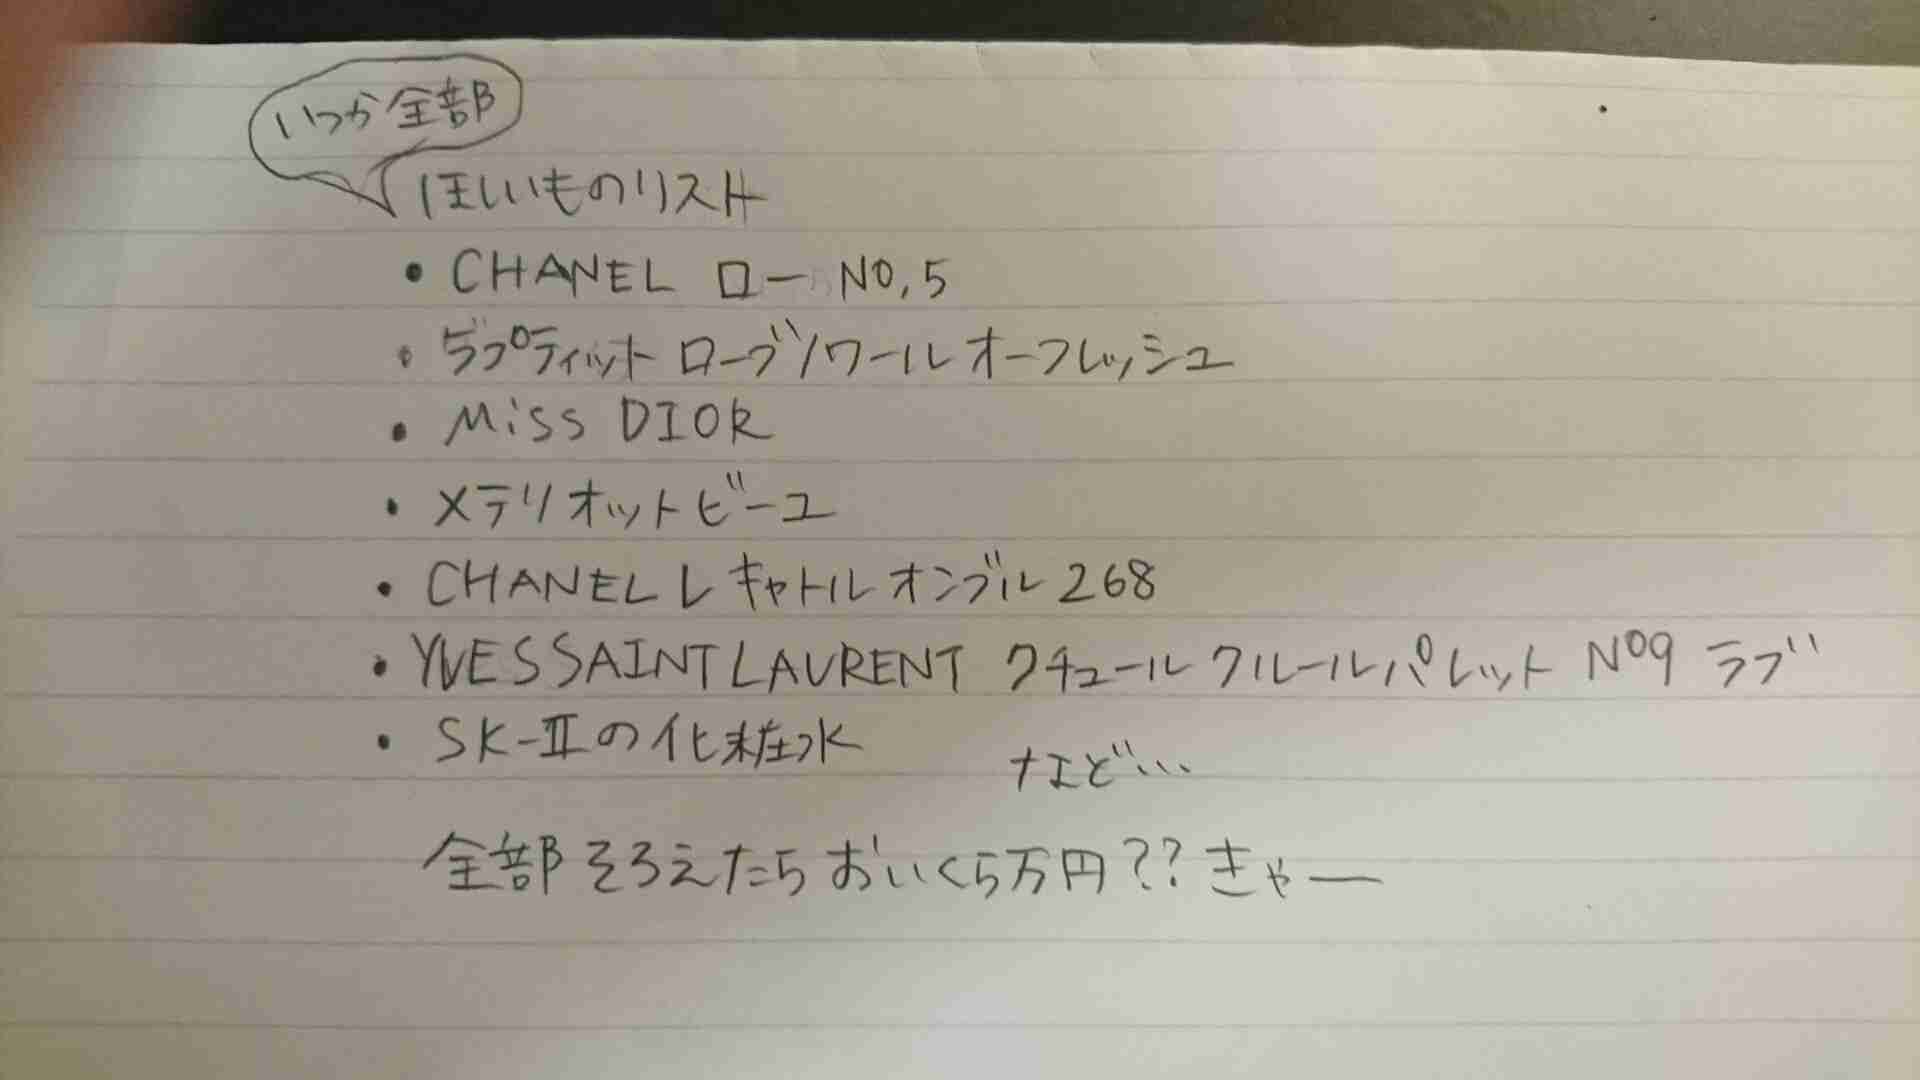 いつか全部
ほしいものリスト
• CHANEL ロー NO,5
• ラプティット ローブノワール オーフレッシュ
• Miss DIOR
• メテリオットビーユ
• CHANEL レ キャトル オンブル 268
• YVESSAINTLAURENT クチュール クルールパレット Nº9 ラブ
• SK-Ⅱの化粧水
など...
全部そろえたらおいくら万円??きゃー